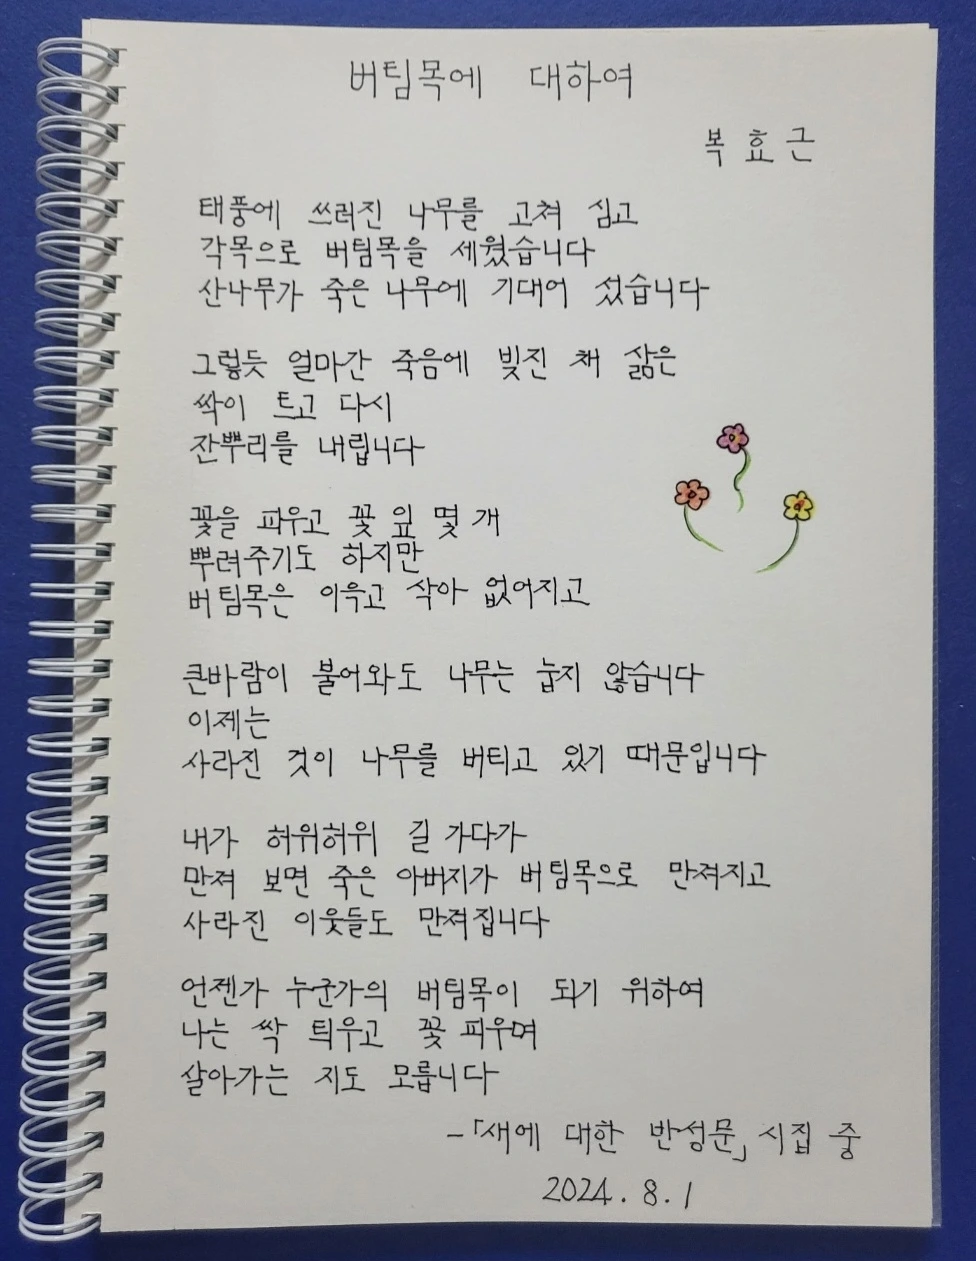 버팀목에 대하여
복효근
태풍에 쓰러진 나무를 고쳐 심고
각목으로 버팀목을 세웠습니다
산나무가 죽은 나무에 기대어 섰습니다
그렇듯 얼마간 죽음에 빚진 채 삶은
싹이 트고 다시
잔뿌리를 내립니다
꽃을 피우고 꽃 잎 몇 개
뿌려주기도 하지만
버팀목은 이윽고 삭아 없어지고
큰바람이 불어와도 나무는 눕지 않습니다
이제는
사라진 것이 나무를 버티고 있기 때문입니다
내가 허위허위 길 가다가
만져 보면 죽은 아버지가 버팀목으로 만져지고
사라진 이웃들도 만져집니다
언젠가 누군가의 버팀목이 되기 위하여
나는 싹 틔우고 꽃 피우며
살아가는 지도 모릅니다
-「새에 대한 반성문」시집 중
2024. 8. 1